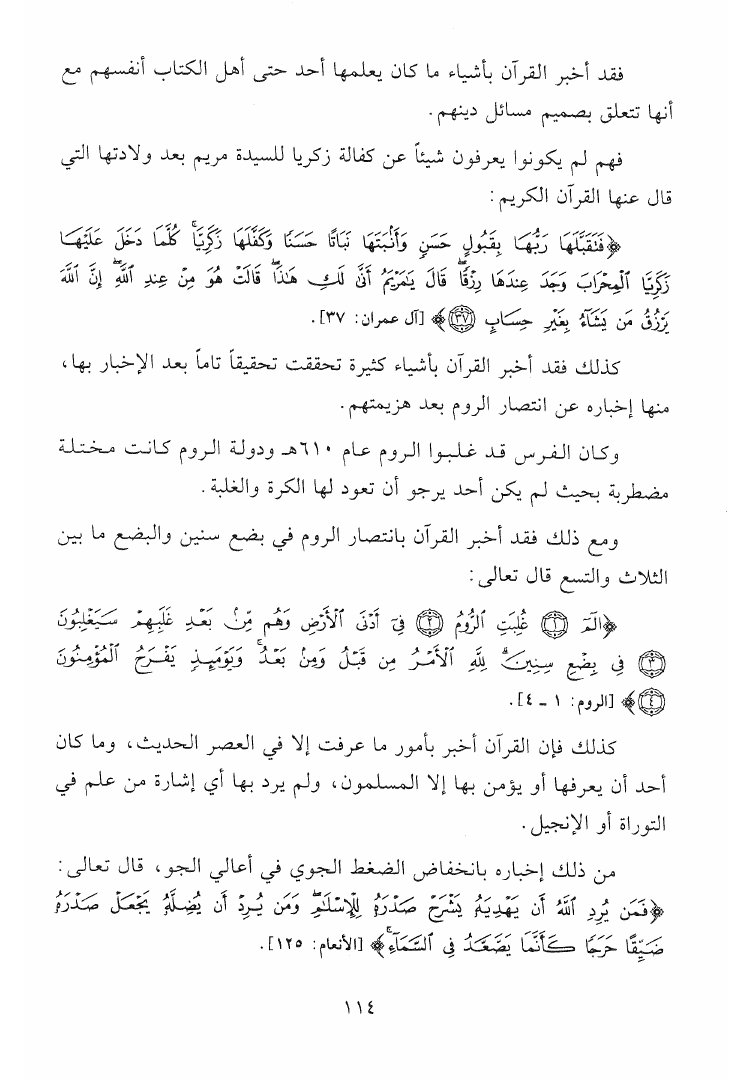 فقد أخبر القرآن بأشياء ما كان يعلمها أحد حتى أهل الكتاب أنفسهم مع
أنها تتعلق بصميم مسائل دينهم.
فهم لم يكونوا يعرفون شيئاً عن كفالة زكريا للسيدة مريم بعد ولادتها التي
قال عنها القرآن الكريم:
﴿فَتَقَبَّلَهَا رَبُّهَا بِقَبُولٍ حَسَنٍ وَأَنۢبَتَهَا نَبَاتًا حَسَنًا وَكَفَّلَهَا زَكَرِيَّاۖ كُلَّمَا دَخَلَ عَلَيْهَا
زَكَرِيَّا ٱلْمِحْرَابَ وَجَدَ عِندَهَا رِزْقًاۖ قَالَ يَٰمَرْيَمُ أَنَّىٰ لَكِ هَٰذَاۖ قَالَتْ هُوَ مِنْ عِندِ ٱللَّهِۖ إِنَّ ٱللَّهَ
يَرْزُقُ مَن يَشَآءُ بِغَيْرِ حِسَابٍ ٣٧﴾ [آل عمران: ٣٧].
كذلك فقد أخبر القرآن بأشياء كثيرة تحققت تحقيقاً تاماً بعد الإخبار بها،
منها إخباره عن انتصار الروم بعد هزيمتهم.
وكان الفرس قد غلبوا الروم عام ٦١٠هـ ودولة الروم كانت مختلة
مضطربة بحيث لم يكن أحد يرجو أن تعود لها الكرة والغلبة.
ومع ذلك فقد أخبر القرآن بانتصار الروم في بضع سنين والبضع ما بين
الثلاث والتسع قال تعالى:
﴿الٓمٓ ١ غُلِبَتِ ٱلرُّومُ ٢ فِىٓ أَدْنَى ٱلْأَرْضِ وَهُم مِّنۢ بَعْدِ غَلَبِهِمْ سَيَغْلِبُونَ
٣ فِى بِضْعِ سِنِينَۗ لِلَّهِ ٱلْأَمْرُ مِن قَبْلُ وَمِنۢ بَعْدُۚ وَيَوْمَئِذٍ يَفْرَحُ ٱلْمُؤْمِنُونَ
٤﴾ [الروم: ١ ـ ٤].
كذلك فإن القرآن أخبر بأمور ما عرفت إلا في العصر الحديث، وما كان
أحد أن يعرفها أو يؤمن بها إلا المسلمون، ولم يرد بها أي إشارة من علم في
التوراة أو الإنجيل.
من ذلك إخباره بانخفاض الضغط الجوي في أعالي الجو، قال تعالى:
﴿فَمَن يُرِدِ ٱللَّهُ أَن يَهْدِيَهُۥ يَشْرَحْ صَدْرَهُۥ لِلْإِسْلَٰمِۖ وَمَن يُرِدْ أَن يُضِلَّهُۥ يَجْعَلْ صَدْرَهُۥ
ضَيِّقًا حَرَجًا كَأَنَّمَا يَصَّعَّدُ فِى ٱلسَّمَآءِۚ﴾ [الأنعام: ١٢٥].
١١٤